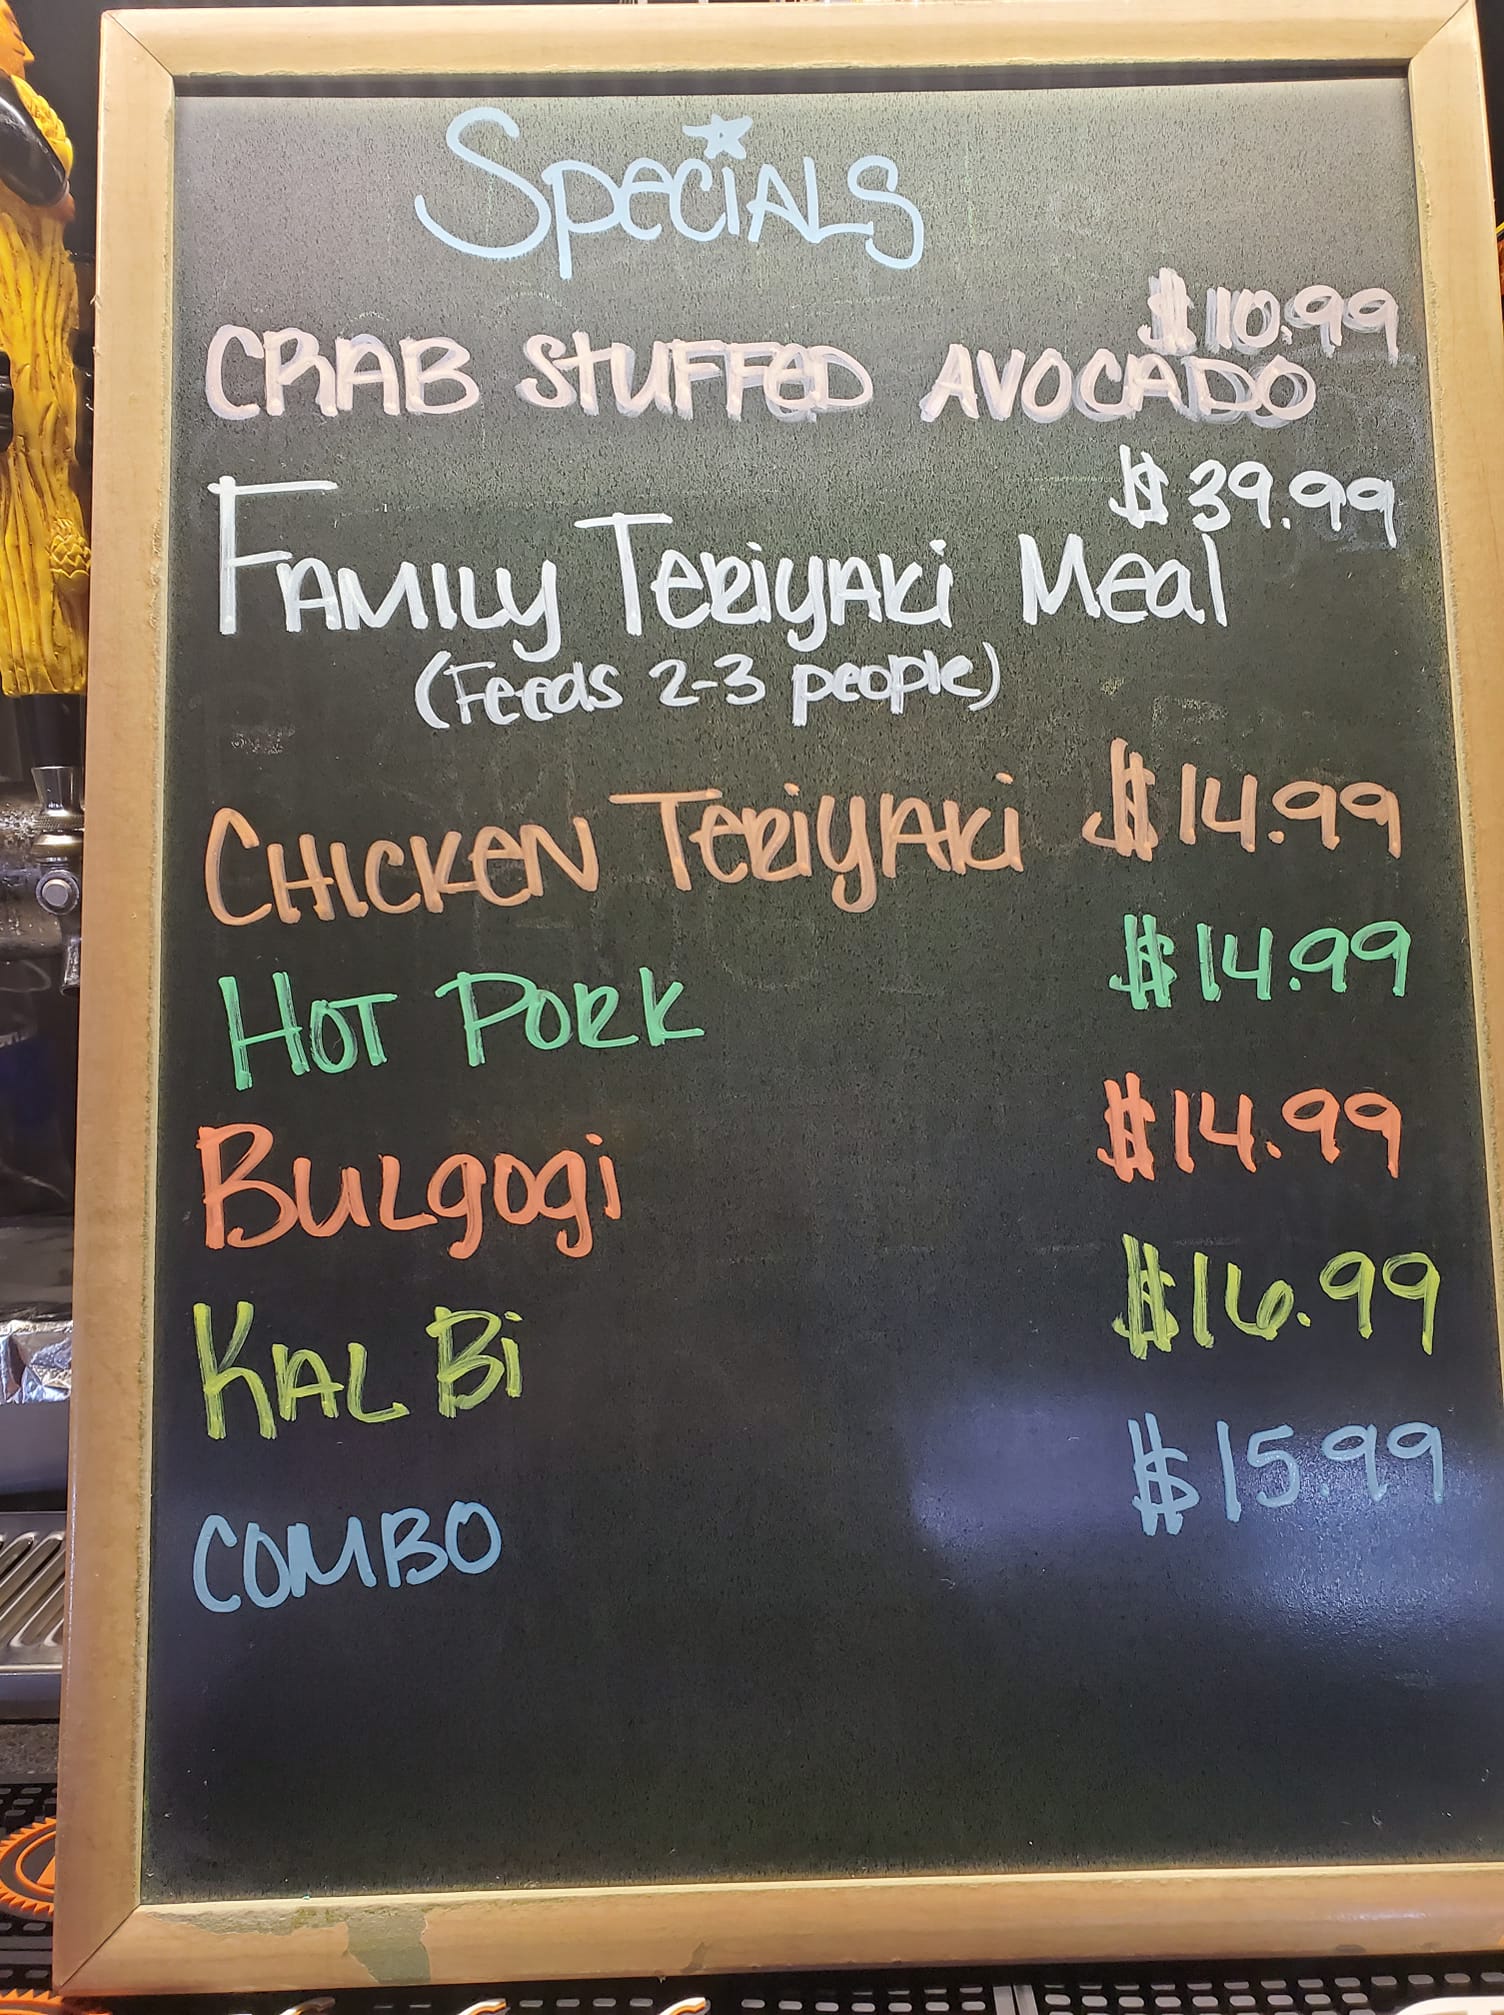 SPECIALS
$10.99
CRAB STUFFED AVOCADO
$39.99
FAMILY TERIYAKI MEAL
(FEEDS 2-3 people)
CHICKEN TERIYAKI $14.99
HOT PORK $14.99
BULgOgi $14.99
KAL Bi $16.99
COMBO $15.99